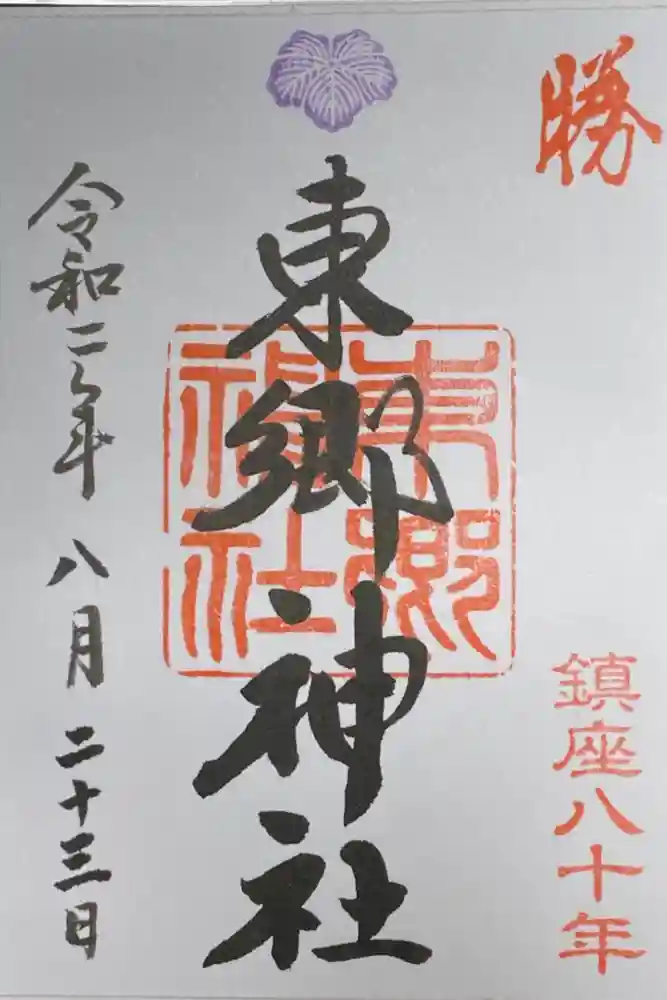 勝
鎮座八十年
東郷神社
東郷神社
令和二年 八月 二十三日